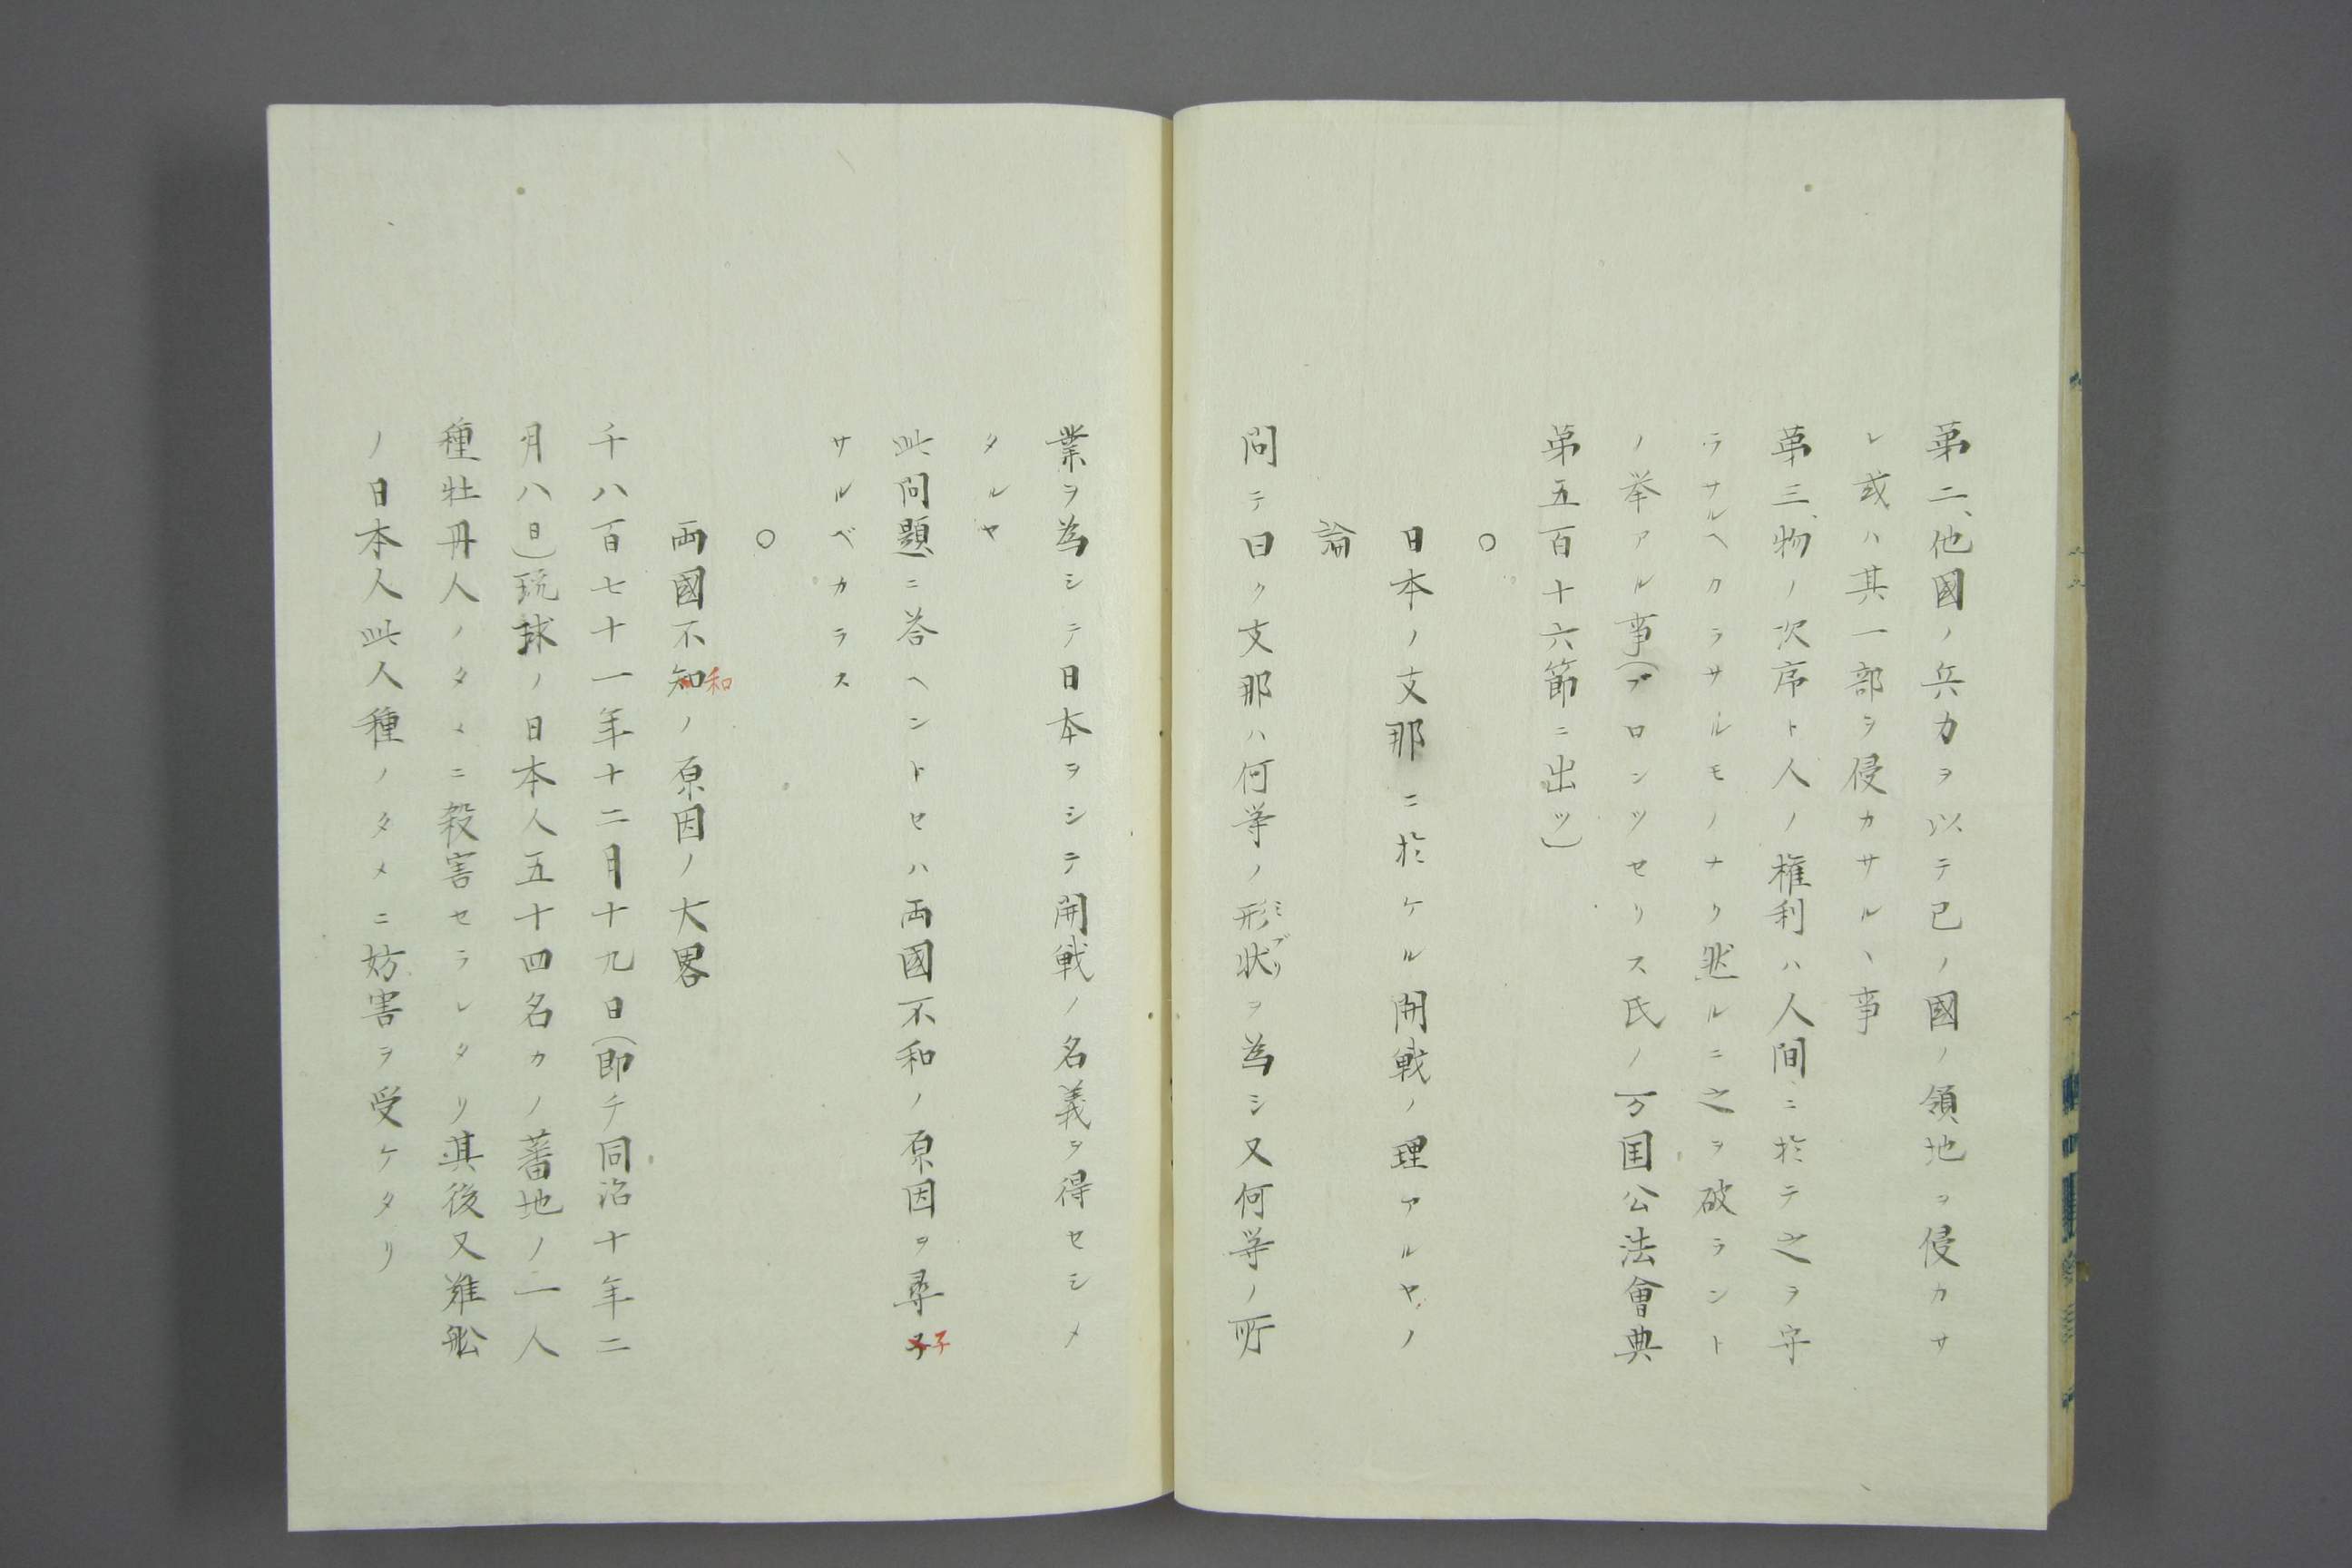 第二、他國ノ兵力ヲ以テ己ノ國ノ領地ヲ侵カサ
レ或ハ其一部ヲ侵カサルヽ事
第三、物ノ次序ト人ノ権利ハ人間ニ於テ之ヲ守
ラサルヘカラサルモノナリ然ルニ之ヲ破ラント
ノ挙アル事(ブロンツセリス氏ノ万国公法會典
第五百十六節ニ出ツ)
○
日本ノ支那ニ於ケル開戦ノ理アルヤノ
論
問テ曰ク支那ハ何等ノ形状ヲ為シ又何等ノ所
ミブリ
業ヲ為シテ日本ヲシテ開戦ノ名義ヲ得セシメ
タルヤ
此問題ニ答ヘントセハ両國不和ノ原因ヲ尋子
サルベカラス
○
両國不知ノ原因ノ大畧
和
千八百七十一年十二月十九日(即チ同治十年二
月八日)琉球ノ日本人五十四名カノ蕃地ノ一人
種牡丹人ノタメニ殺害セラレタリ其後又難舩
ノ日本人此人種ノタメニ妨害ヲ受ケタリ